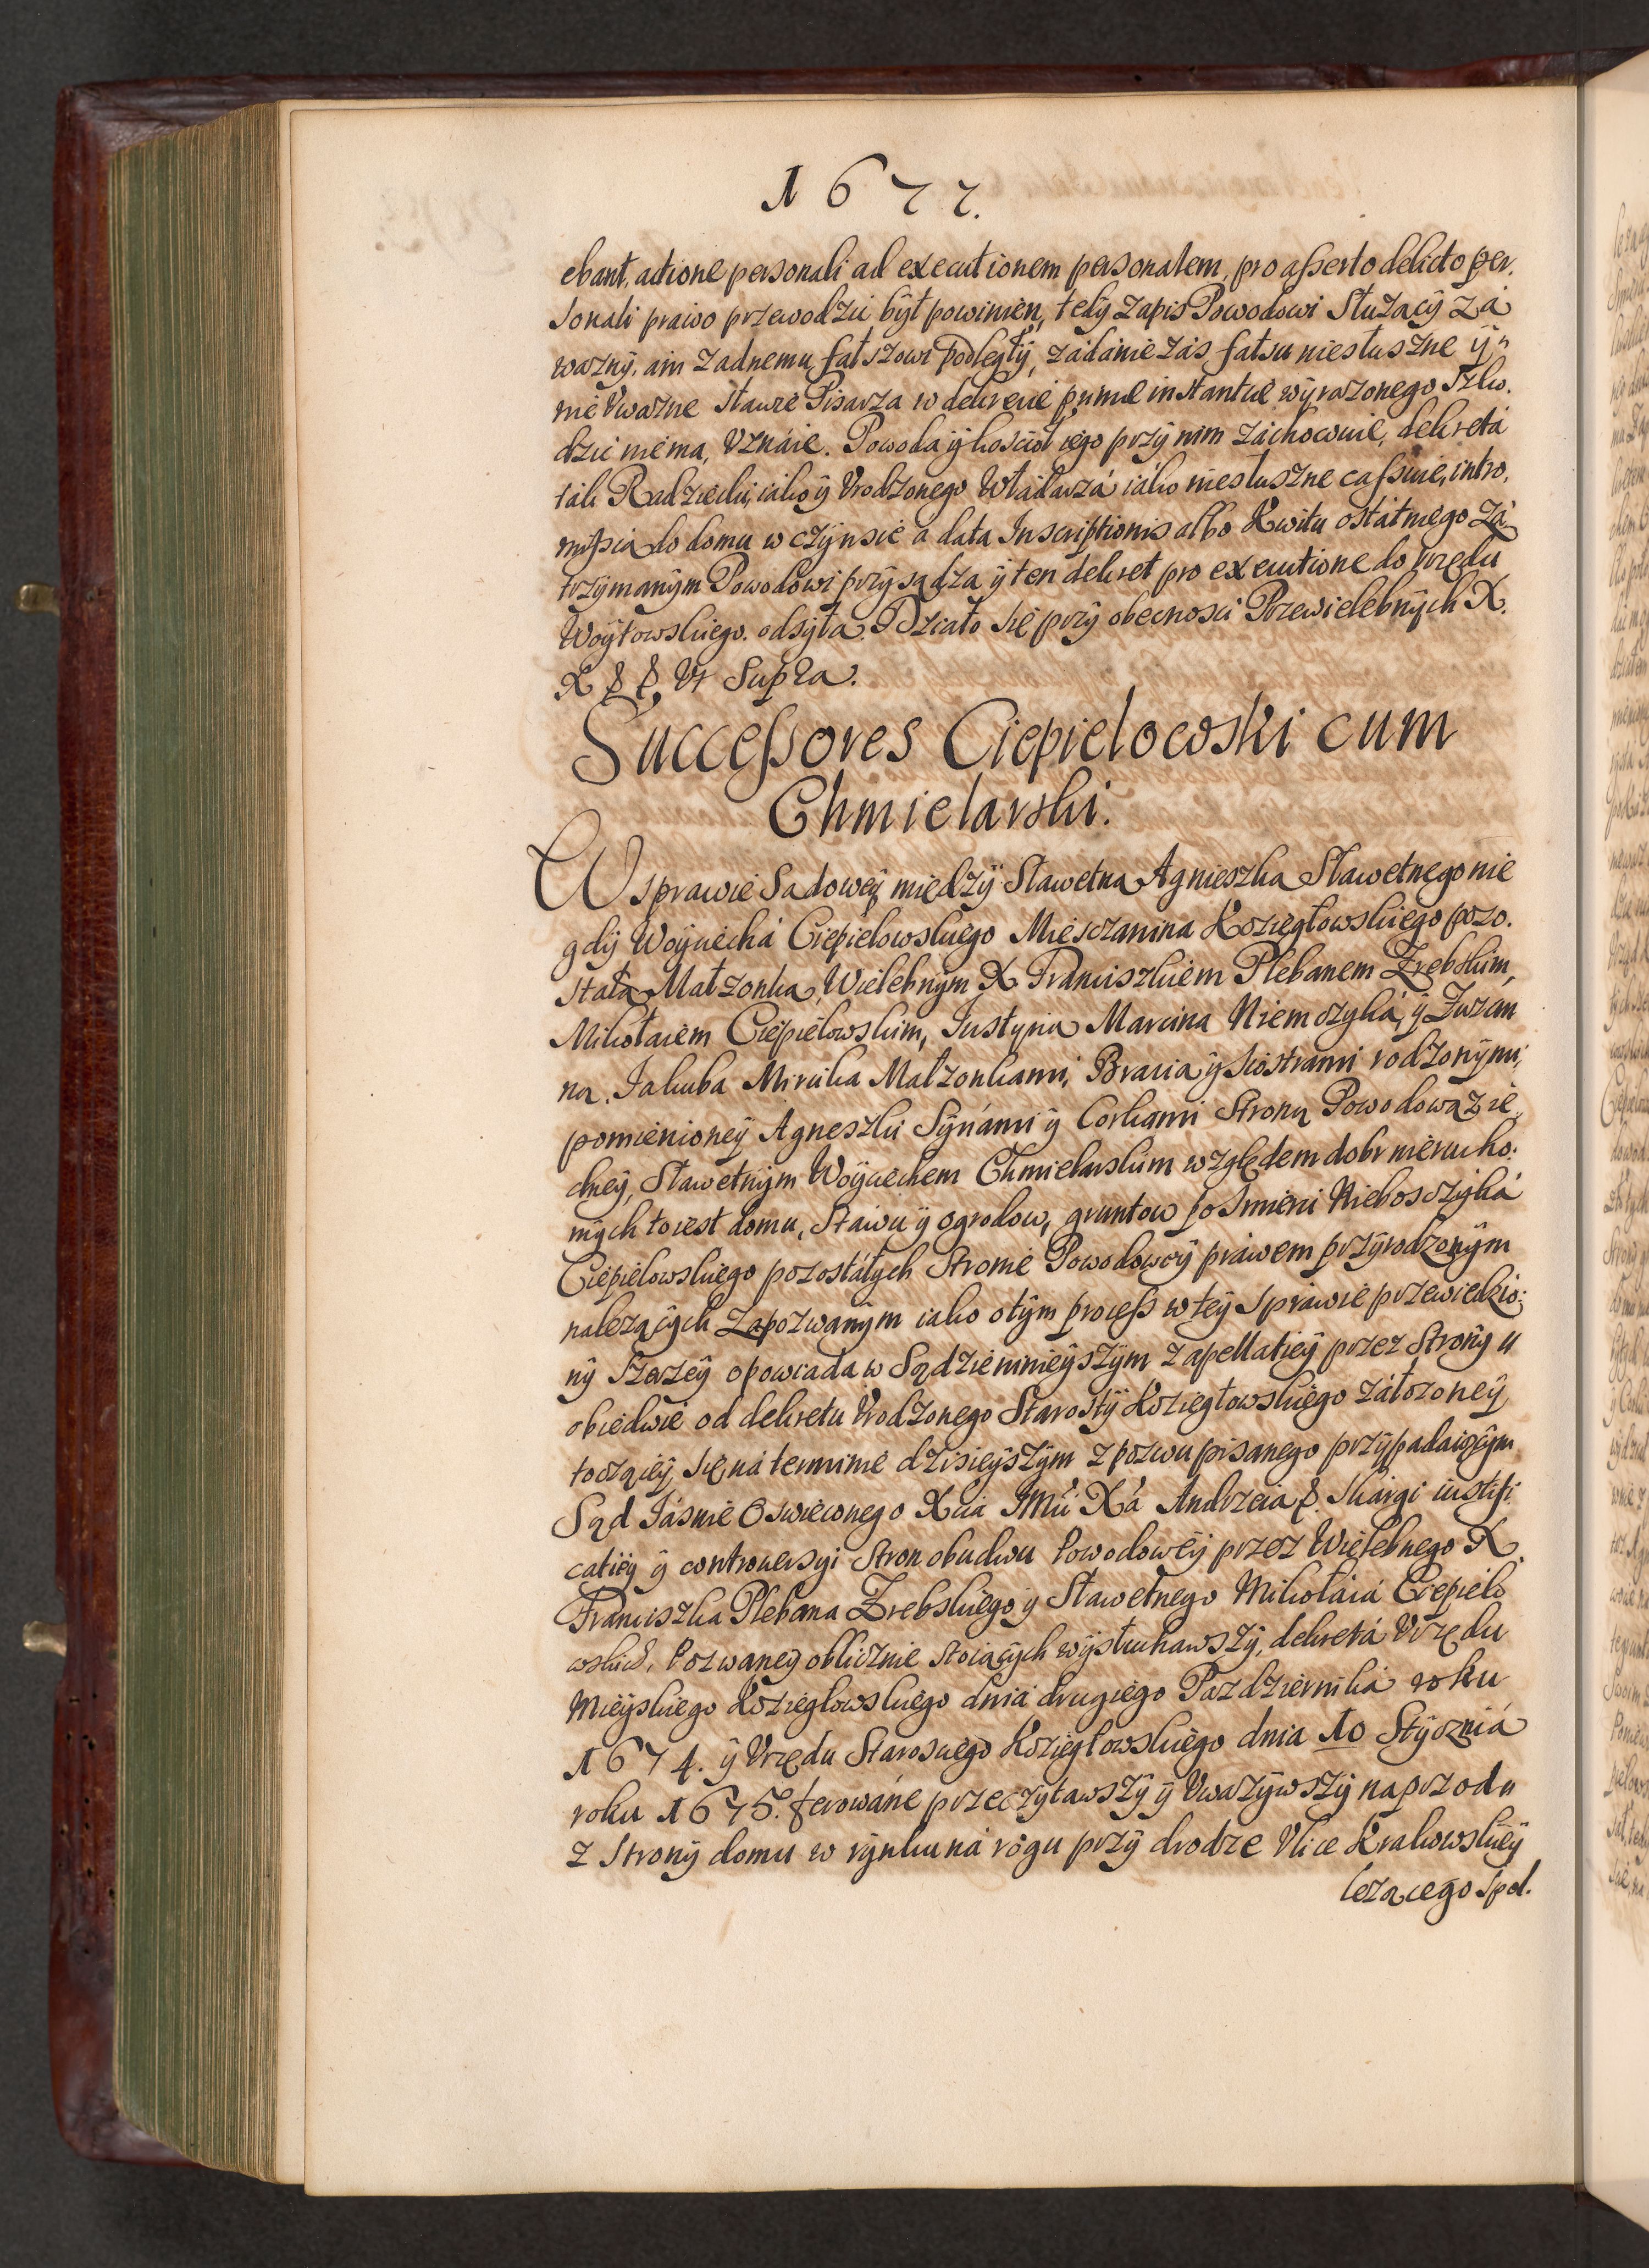 1677.
ebant, actione personali ad executionem personalem, pro asserto delicto per,
sonali prawo przewodzić był powinien, tedy zapis Powodowi Służący zá
wazny, ani zadnemu fałszowi podległy, zádanie zás fałsu niesłuszne ÿ
nie Uwazne sławie Pisarza w dekrecie primæ instantiæ wyrazonego szko,
dzić nie ma, Uznáie. Powoda ÿ kościoł iego przÿ nim záchowuie, dekretá
ták Radziecki, iako ÿ Urodzonego Włádarzá iáko niesłuszne cassuie, intro,
missią do domu w czÿnsie a data Inscriptionis albo Kwitu ostátniego zá
trzÿmanÿm Powodowi przÿsądza ÿ ten dekret pro executione do Urzędu
Woÿtowskiego odsÿła. Działo się przÿ obecnosci Przewielebnÿch X.
X Ut Supra.
Successores Ciepielowski cum
Chmielarski.
W sprawie Sądoweÿ międzÿ Sławetną Agnieszką Sławetnego nie
gdÿ Woÿciechá Ciepielowskiego Miesczanina Koziegłowskiego pozo.
stałą Małzonką, Wielebnÿm X Franciszkiem Plebanem Zrebskim,
Mikołaiem Ciepielowskim, Justyną Marcina Niemczyká, ÿ Zuzan
ną Jakuba Mirika Małzonkami, Bracią ÿ siostrami rodzonÿmi,
pomienioneÿ Agneszki Sÿnámi ÿ Corkami Stroną Powodową z ie,
dneÿ, Sławetnÿm Woÿciechem Chmielarskim względem dobr nierucho:
mych to iest domu, Stáwu ÿ ogrodow, gruntow po Smierci Niebosczÿká
Ciepielowskiego pozostáłych Stronie Powodowÿ práwem przÿrodzonÿm
nalezącÿch Zapozwanÿm iako o tÿm process w teÿ sprawie przewiedzio:
nÿ szerzeÿ opowiada w Sądzie ninieÿszÿm z apellatieÿ przez Stronÿ u
obiedwie od dekretu Urodzonego Starostÿ Koziegłowskiego záłozoneÿ
toczącÿ się ná terminie dzisieÿszÿm z pozwu pisanego przÿpadaiącÿm
Sąd Jásnie Oswieconego Xcia JMći Xá Andrzeia &. skargi iustifi
catieÿ ÿ controuersyi Stron obudwu Powodoweÿ przez Wielebnego X.
Franciszka Plebana Zrebskiego ÿ Sławetnego Mikołáiá Ciepielo
wskich, Pozwaneÿ oblicznie stoiącÿch wÿsłuchawszÿ, dekretá Urzędu
Mieÿskiego Koziegłowskiego dniá drugiego Pazdzierniká roku
1674. ÿ Urzędu Staroscego Koziegłowskiego dnia 10 Stÿczniá
roku 1675. ferowáne przeczytawszÿ ÿ Uwazÿwszÿ naprzodu
z Stronÿ domu w rÿnku ná rogu przÿ drodze Ulice Krakowskieÿ
lezącego spol.